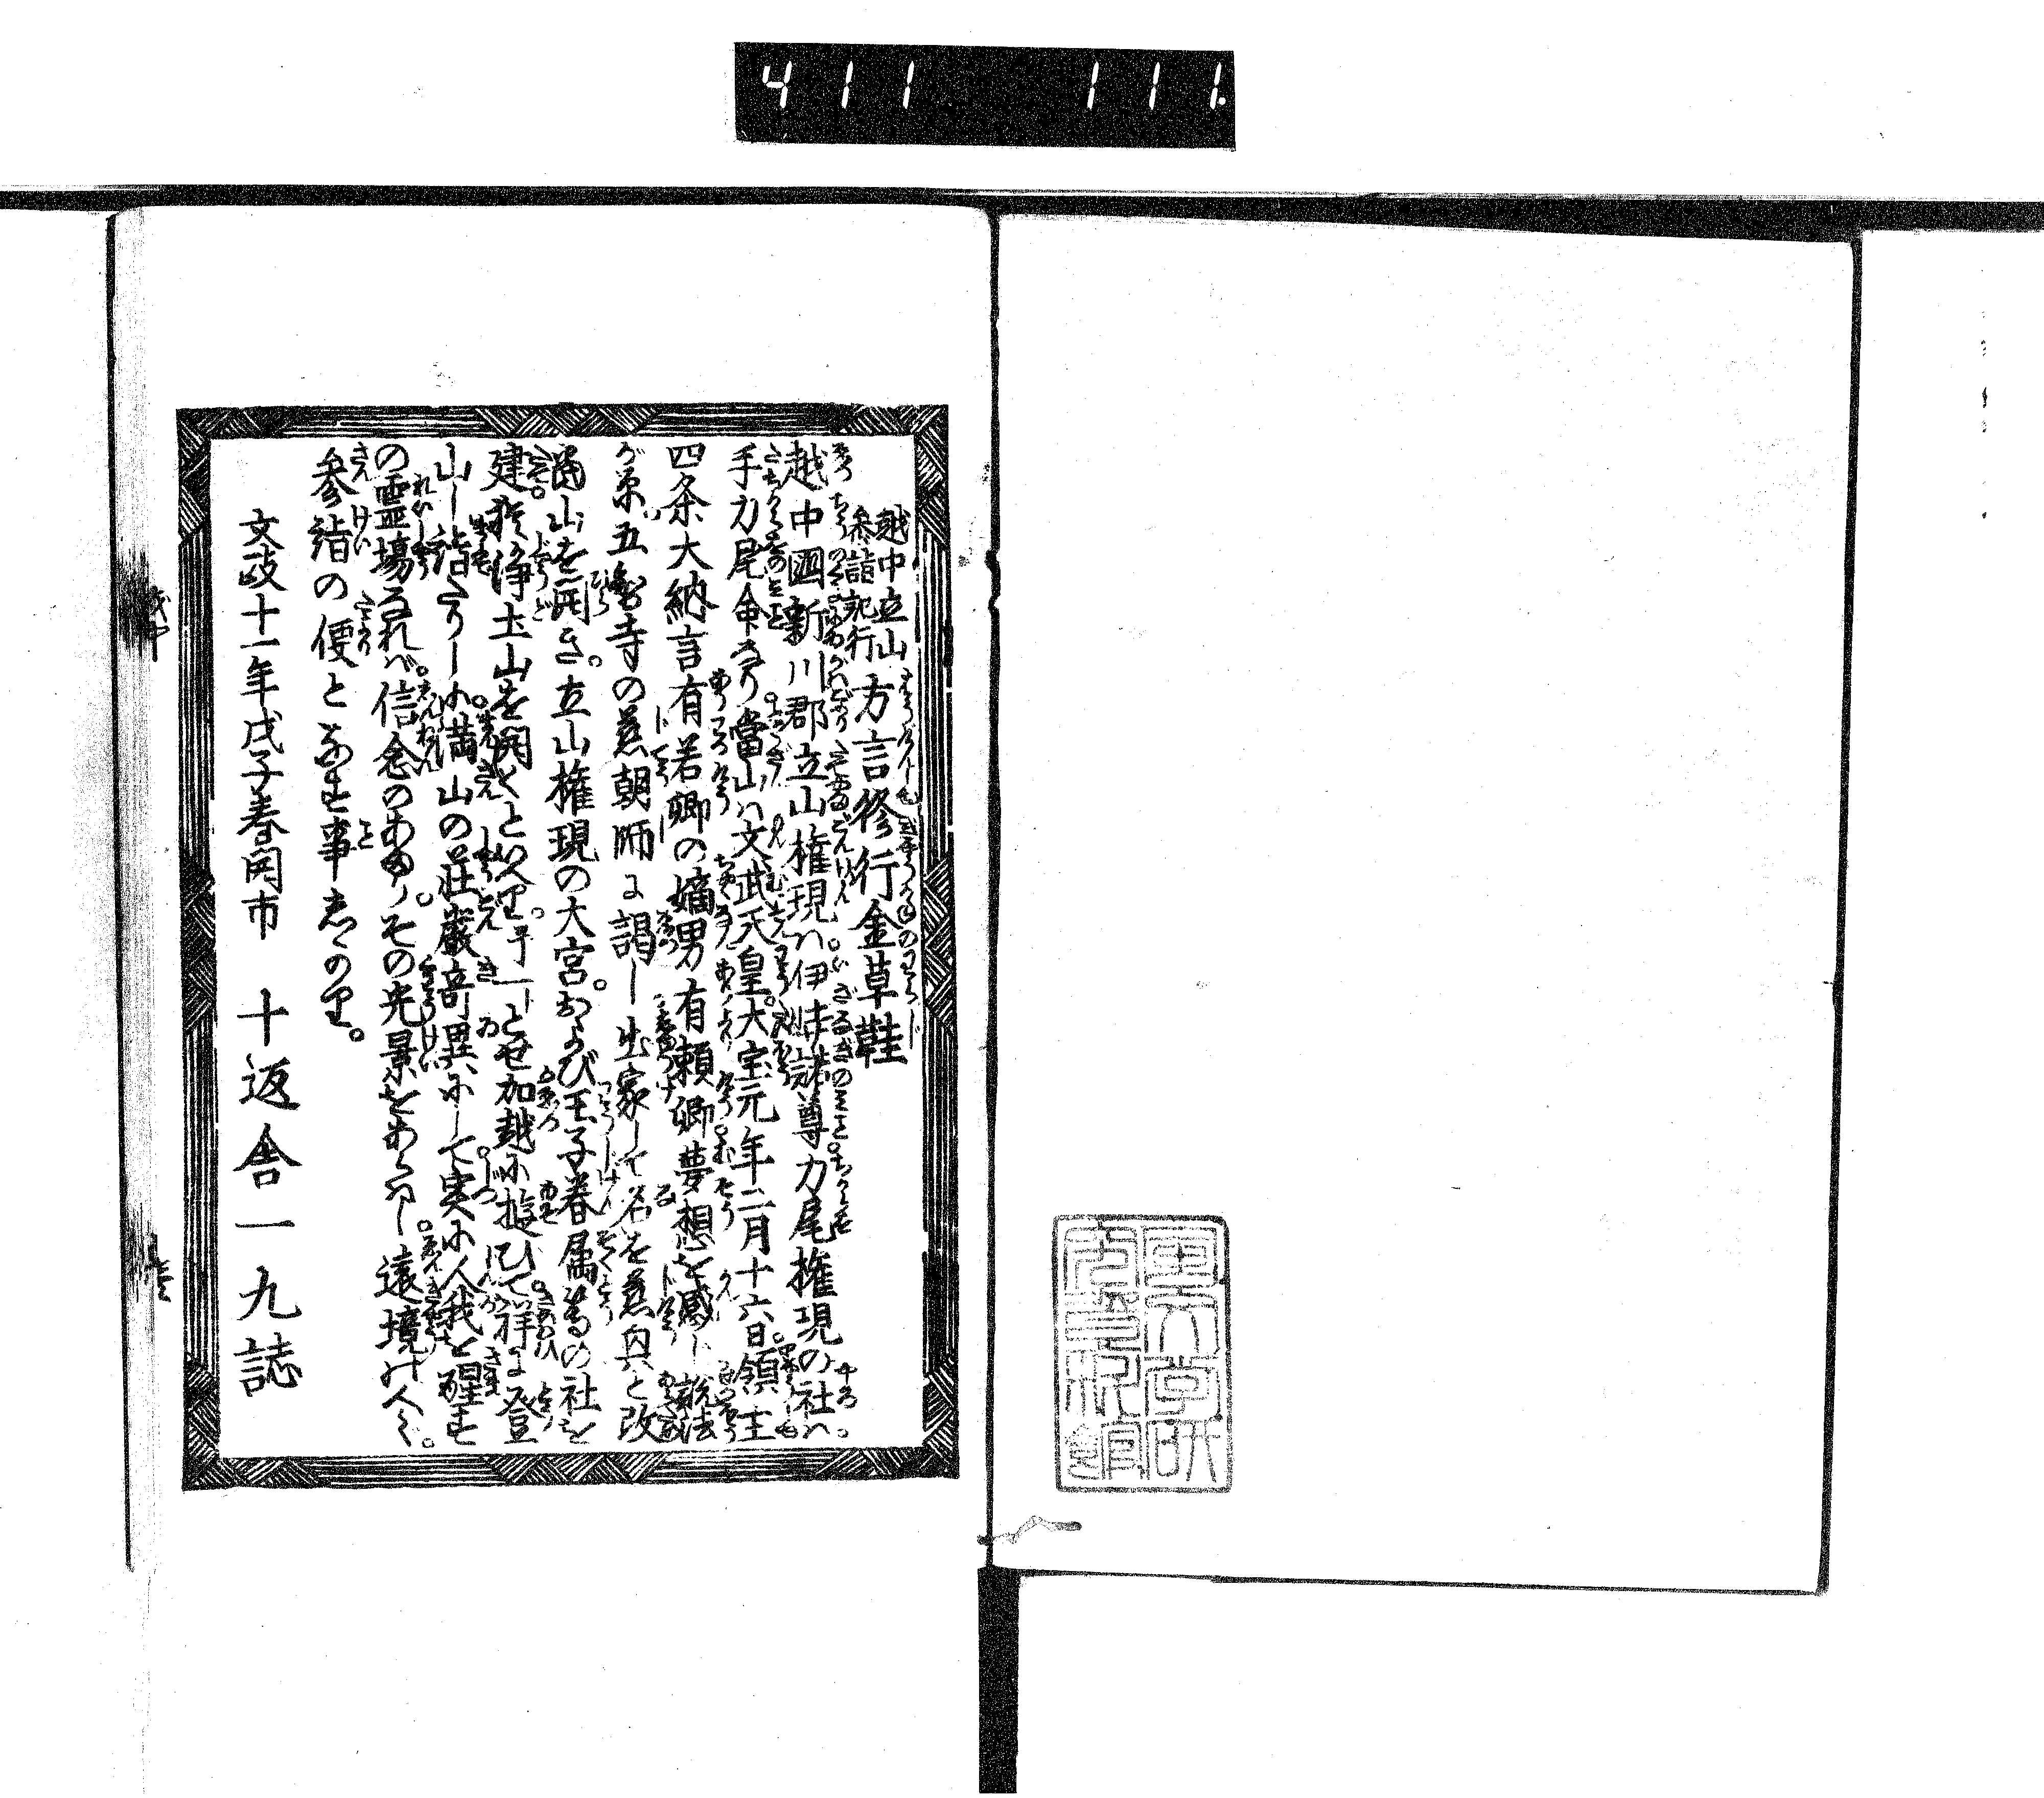 411 111.
越中立山
参詣紀行
方言修行金草鞋
越中國新川郡立山権現ハ伊弉諾尊力尾権現の社ハ
手力尾命なり當山ハ文武天皇大宝元年二月十六日領主
四条大納言有若卿の嫡男有頼卿夢想を感じ説法
が原五智寺の慈朝師に謁し出家して名を慈興と改
當山を開き。立山権現の大宮。および王子眷属等の社を
建て浄土山を開くと以里。予一とせ加越に遊びて祥に登
山し詣たりしに満山の荘厳奇異にして実に人我を醒す
の霊場なれば。信念のあまり。その光景をあらハし遠境の人々。
参詣の便となす事しかり。
文政十一年戊子春開市 十返舎一九誌